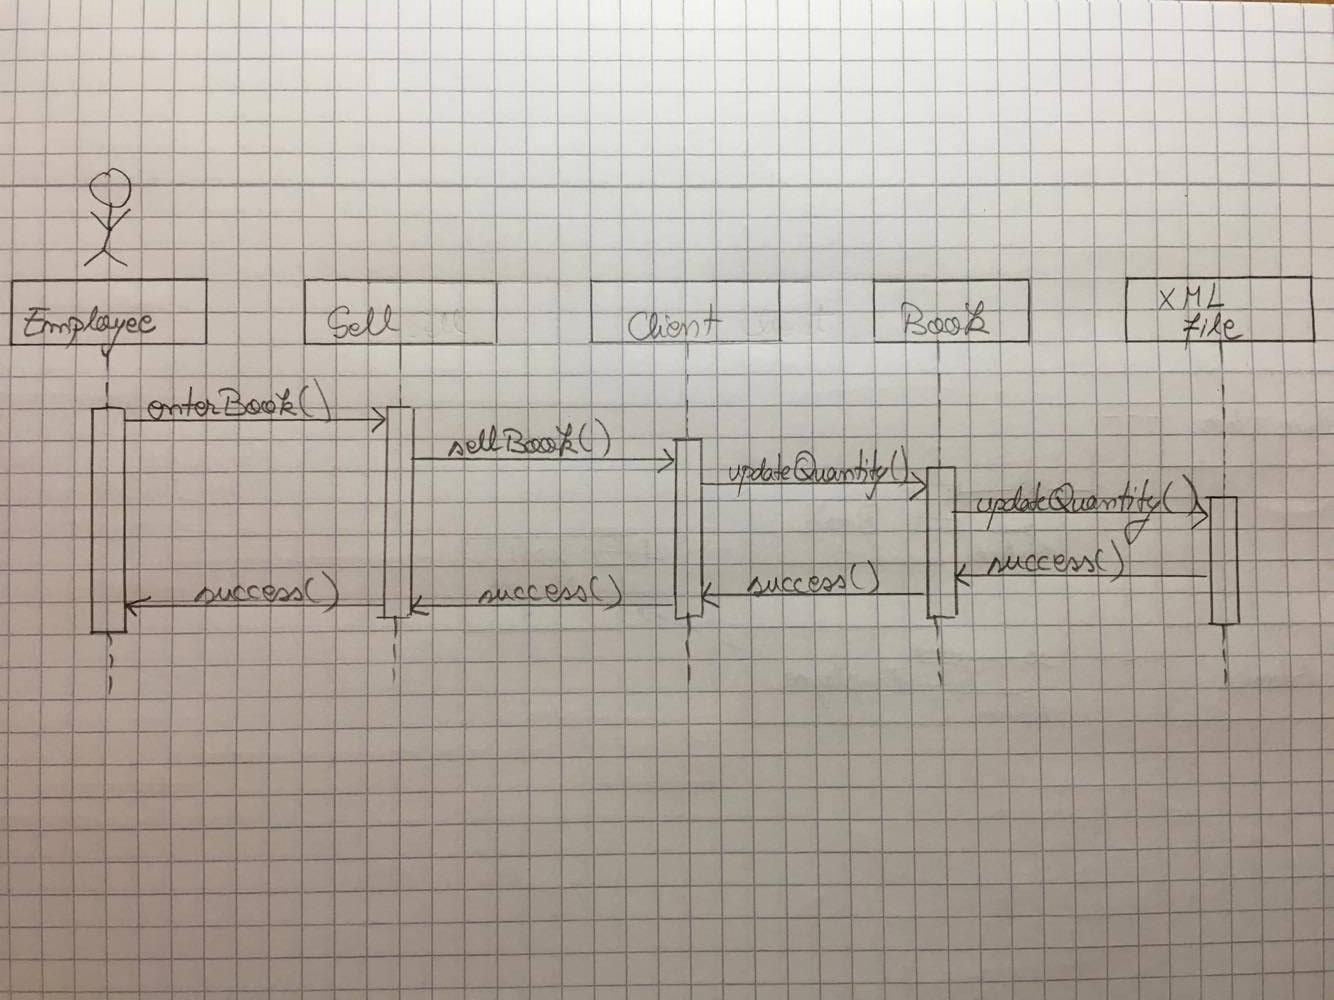 Employee
Sell
Client
Book
XML
File
enterBook()
sellBook()
updateQuantity()
updateQuantity()
success()
success()
success()
success()